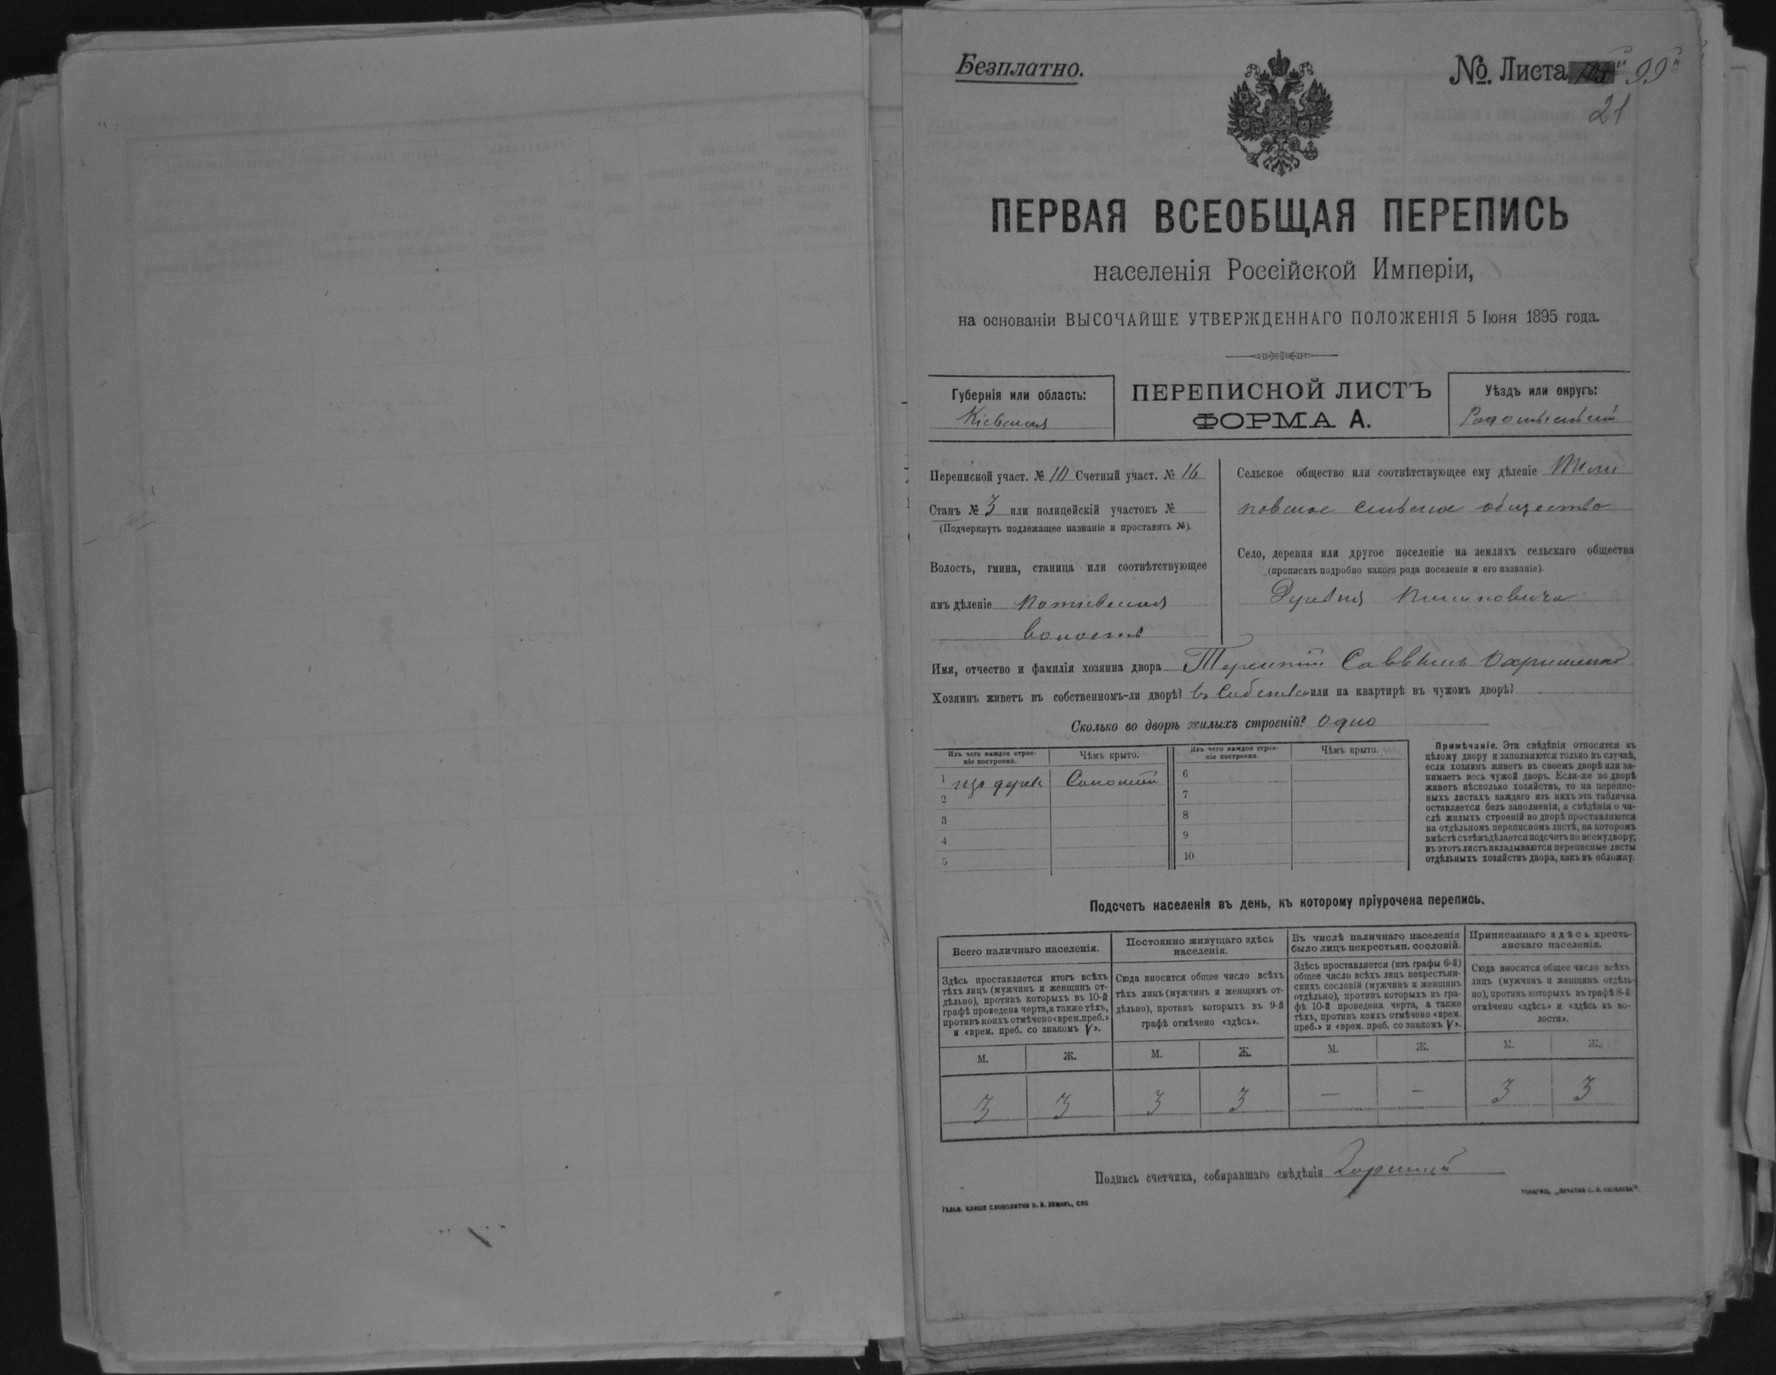 Безплатно.
№. Листа "99"
21
ПЕРВАЯ ВСЕОБЩАЯ ПЕРЕПИСЬ
населенія Россійской Имперіи,
на основаніи ВЫСОЧАЙШЕ УТВЕРЖДЕННАГО ПОЛОЖЕНІЯ 5 Іюня 1895 года.
Губернія или область:
Кіевская
ПЕРЕПИСНОЙ ЛИСТЪ
ФОРМА А.
Уѣздъ или округъ:
Радомысльскій
Переписной участ. № 10 Счетный участ. № 16
Станъ № 3 или полицейскій участокъ №
(Подчеркнуть подлежащее названіе и проставить №).
Волость, гмина, станица или соотвѣтствующее
имъ дѣленіе Потіевская
волость
Сельское общество или соотвѣтствующее ему дѣленіе
сельское общество
Село, деревня или другое поселеніе на земляхъ сельскаго общества
(прописать подробно какого рода поселеніе и его названіе).
Имя, отчество и фамилія хозяина двора Терентій
Хозяинъ живетъ въ собственномъ-ли дворѣ? или на квартирѣ въ чужомъ дворѣ?
Сколько во дворѣ жилыхъ строеній? Одно
Изъ чего каждое строе-
ніе построено.
Чѣмъ крыто.
Изъ чего каждое строе-
ніе построено.
Чѣмъ крыто.
1 изъ дерев Соломой
2
3
4
5
6
7
8
9
10
Примѣчаніе. Эти свѣдѣнія относятся къ
цѣлому двору и заполняются только въ случаѣ,
если хозяинъ живетъ въ своемъ дворѣ или за-
нимаетъ весь чужой дворъ. Если-же во дворѣ
живетъ нѣсколько хозяйствъ, то на перепис-
ныхъ листахъ каждаго изъ нихъ эта табличка
оставляется безъ заполненія, а свѣдѣнія о чи-
слѣ жилыхъ строеній во дворѣ проставляются
на отдѣльномъ переписномъ листѣ, на которомъ
вмѣстѣ съ тѣмъ дѣлается подсчетъ по всему двору;
въ этотъ листъ вкладываются переписные листы
отдѣльныхъ хозяйствъ двора, какъ въ обложку.
Подсчетъ населенія въ день, къ которому пріурочена перепись.
Всего наличнаго населенія.
Здѣсь проставляется итогъ всѣхъ
тѣхъ лицъ (мужчинъ и женщинъ от-
дѣльно), противъ которыхъ въ 10-й
графѣ проведена черта, а также тѣхъ,
противъ коихъ отмѣчено «врем. преб.»
и «врем. преб. со знакомъ V».
Постоянно живущаго здѣсь
населенія.
Сюда вносится общее число всѣхъ
тѣхъ лицъ (мужчинъ и женщинъ от-
дѣльно), противъ которыхъ въ 9-й
графѣ отмѣчено «здѣсь».
Въ числѣ наличнаго населенія
было лицъ некрестьян. сословій.
Здѣсь проставляется (изъ графы 6-й)
общее число всѣхъ лицъ некрестьян-
скихъ сословій (мужчинъ и женщинъ
отдѣльно), противъ которыхъ въ гра-
фѣ 10-й проведена черта, а также
тѣхъ, противъ коихъ отмѣчено «врем.
преб.» и «врем. преб. со знакомъ V».
Приписаннаго здѣсь кресть-
янскаго населенія.
Сюда вносится общее число всѣхъ
лицъ (мужчинъ и женщинъ отдѣль-
но), противъ которыхъ въ графѣ 8-й
отмѣчено «здѣсь» и «здѣсь въ во-
лости».
М. Ж. М. Ж. М. Ж. М. Ж.
3 3 3 3 — — 3 3
Подпись счетчика, собиравшаго свѣдѣнія